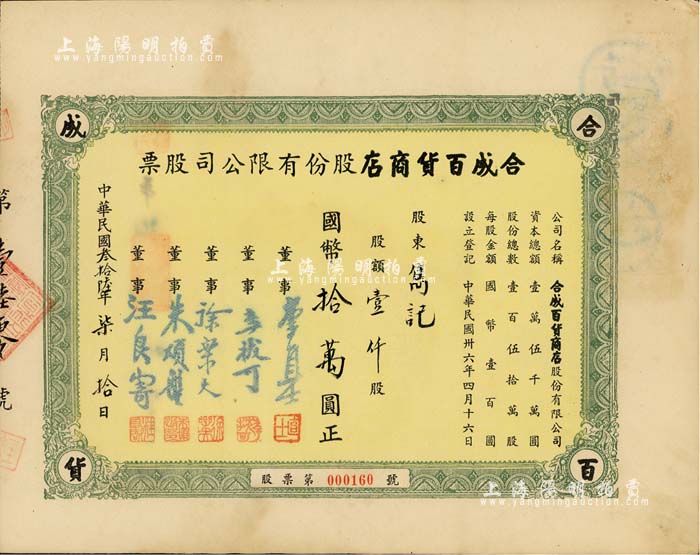 上海陽明拍賣
www.yangmingauction.com
合成百貨
合成百貨商店股份有限公司股票
公司名稱 合成百貨商店股份有限公司
資本總額 壹萬伍千萬圓
股份總數 壹百伍拾萬股
每股金額 國幣壹百圓
設立登記 中華民國卅六年四月十六日
股東 記
股額 壹仟股
國幣拾萬圓正
董事
董事
董事 徐
董事 朱頌
董事 汪良寄
中華民國叁拾陸年柒月拾日
股票第 000160 號
第 號
上海陽明拍賣
www.yangmingauction.com